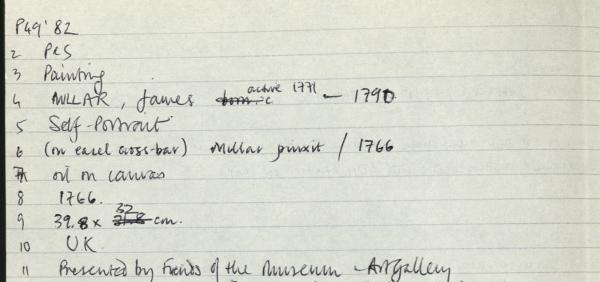 P49'82
2 P&S
3 Painting
4 MILLAR, James born c active 1771 - 1790
5 Self-Portrait
6 (on easel cross-bar) Millar pinxit / 1766
7 oil on canvas
8 1766.
9 39.8 x 32 cm.
10 U.K.
11 Presented by Friends of the Museum & Art Gallery